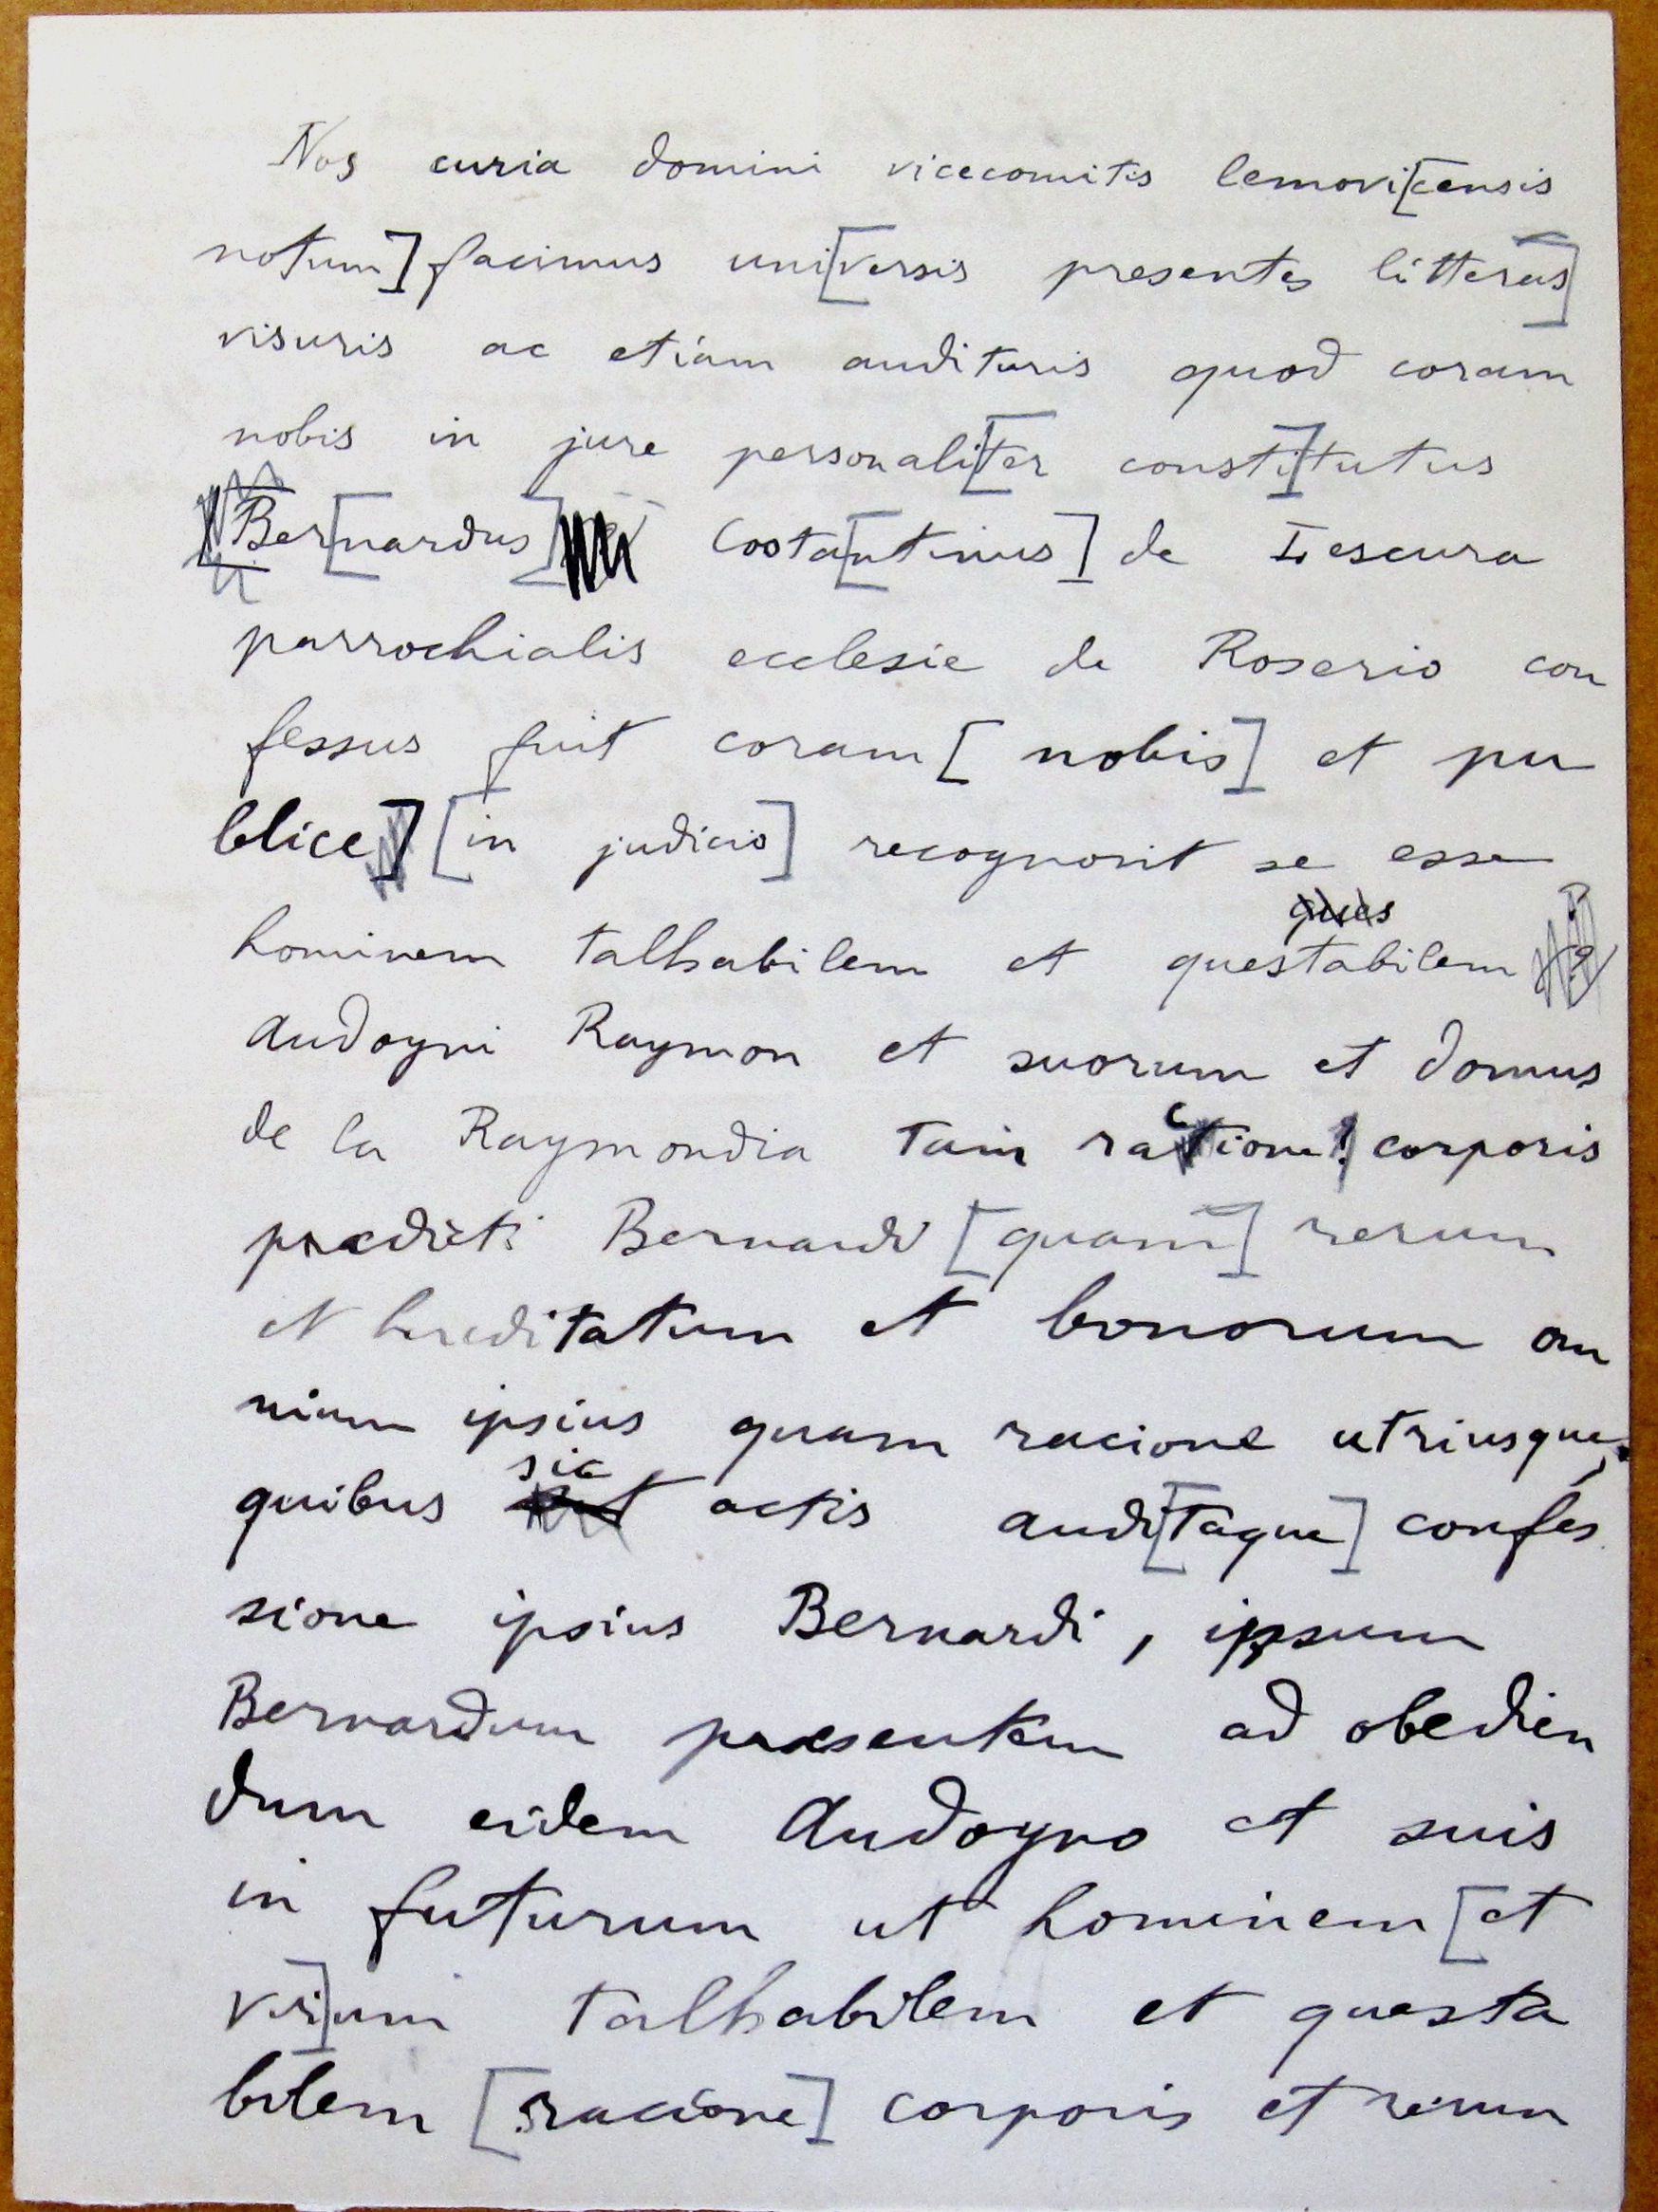 Nos curia domini vicecomitis lemovi[censis
notum] facimus uni[versis presentes litteras]
visuris ac etiam audituris quod coram
nobis in jure personali[ter consti]tutus
Ber[nardus] Costa[ntinus] de Lescura
parrochialis ecclesie de Roserio con
fessus fuit coram [nobis] et pu
blice] [in judicio] recognovit se esse
hominem talhabilem et questabilem
Audoyni Raymon et suorum et domus
de la Raymondia tam racione corporis
predicti Bernardi [quam] rerum
et hereditatum et bonorum om
nium ipsius quam racione utriusque,
quibus sic actis audi[taque] confes
sione ipsius Bernardi, ipsum
Bernardum presentem ad obedien
dum eidem Audoyno et suis
in futurum ut hominem [et
ver]um talhabilem et questa
bilem [racione] corporis et rerum